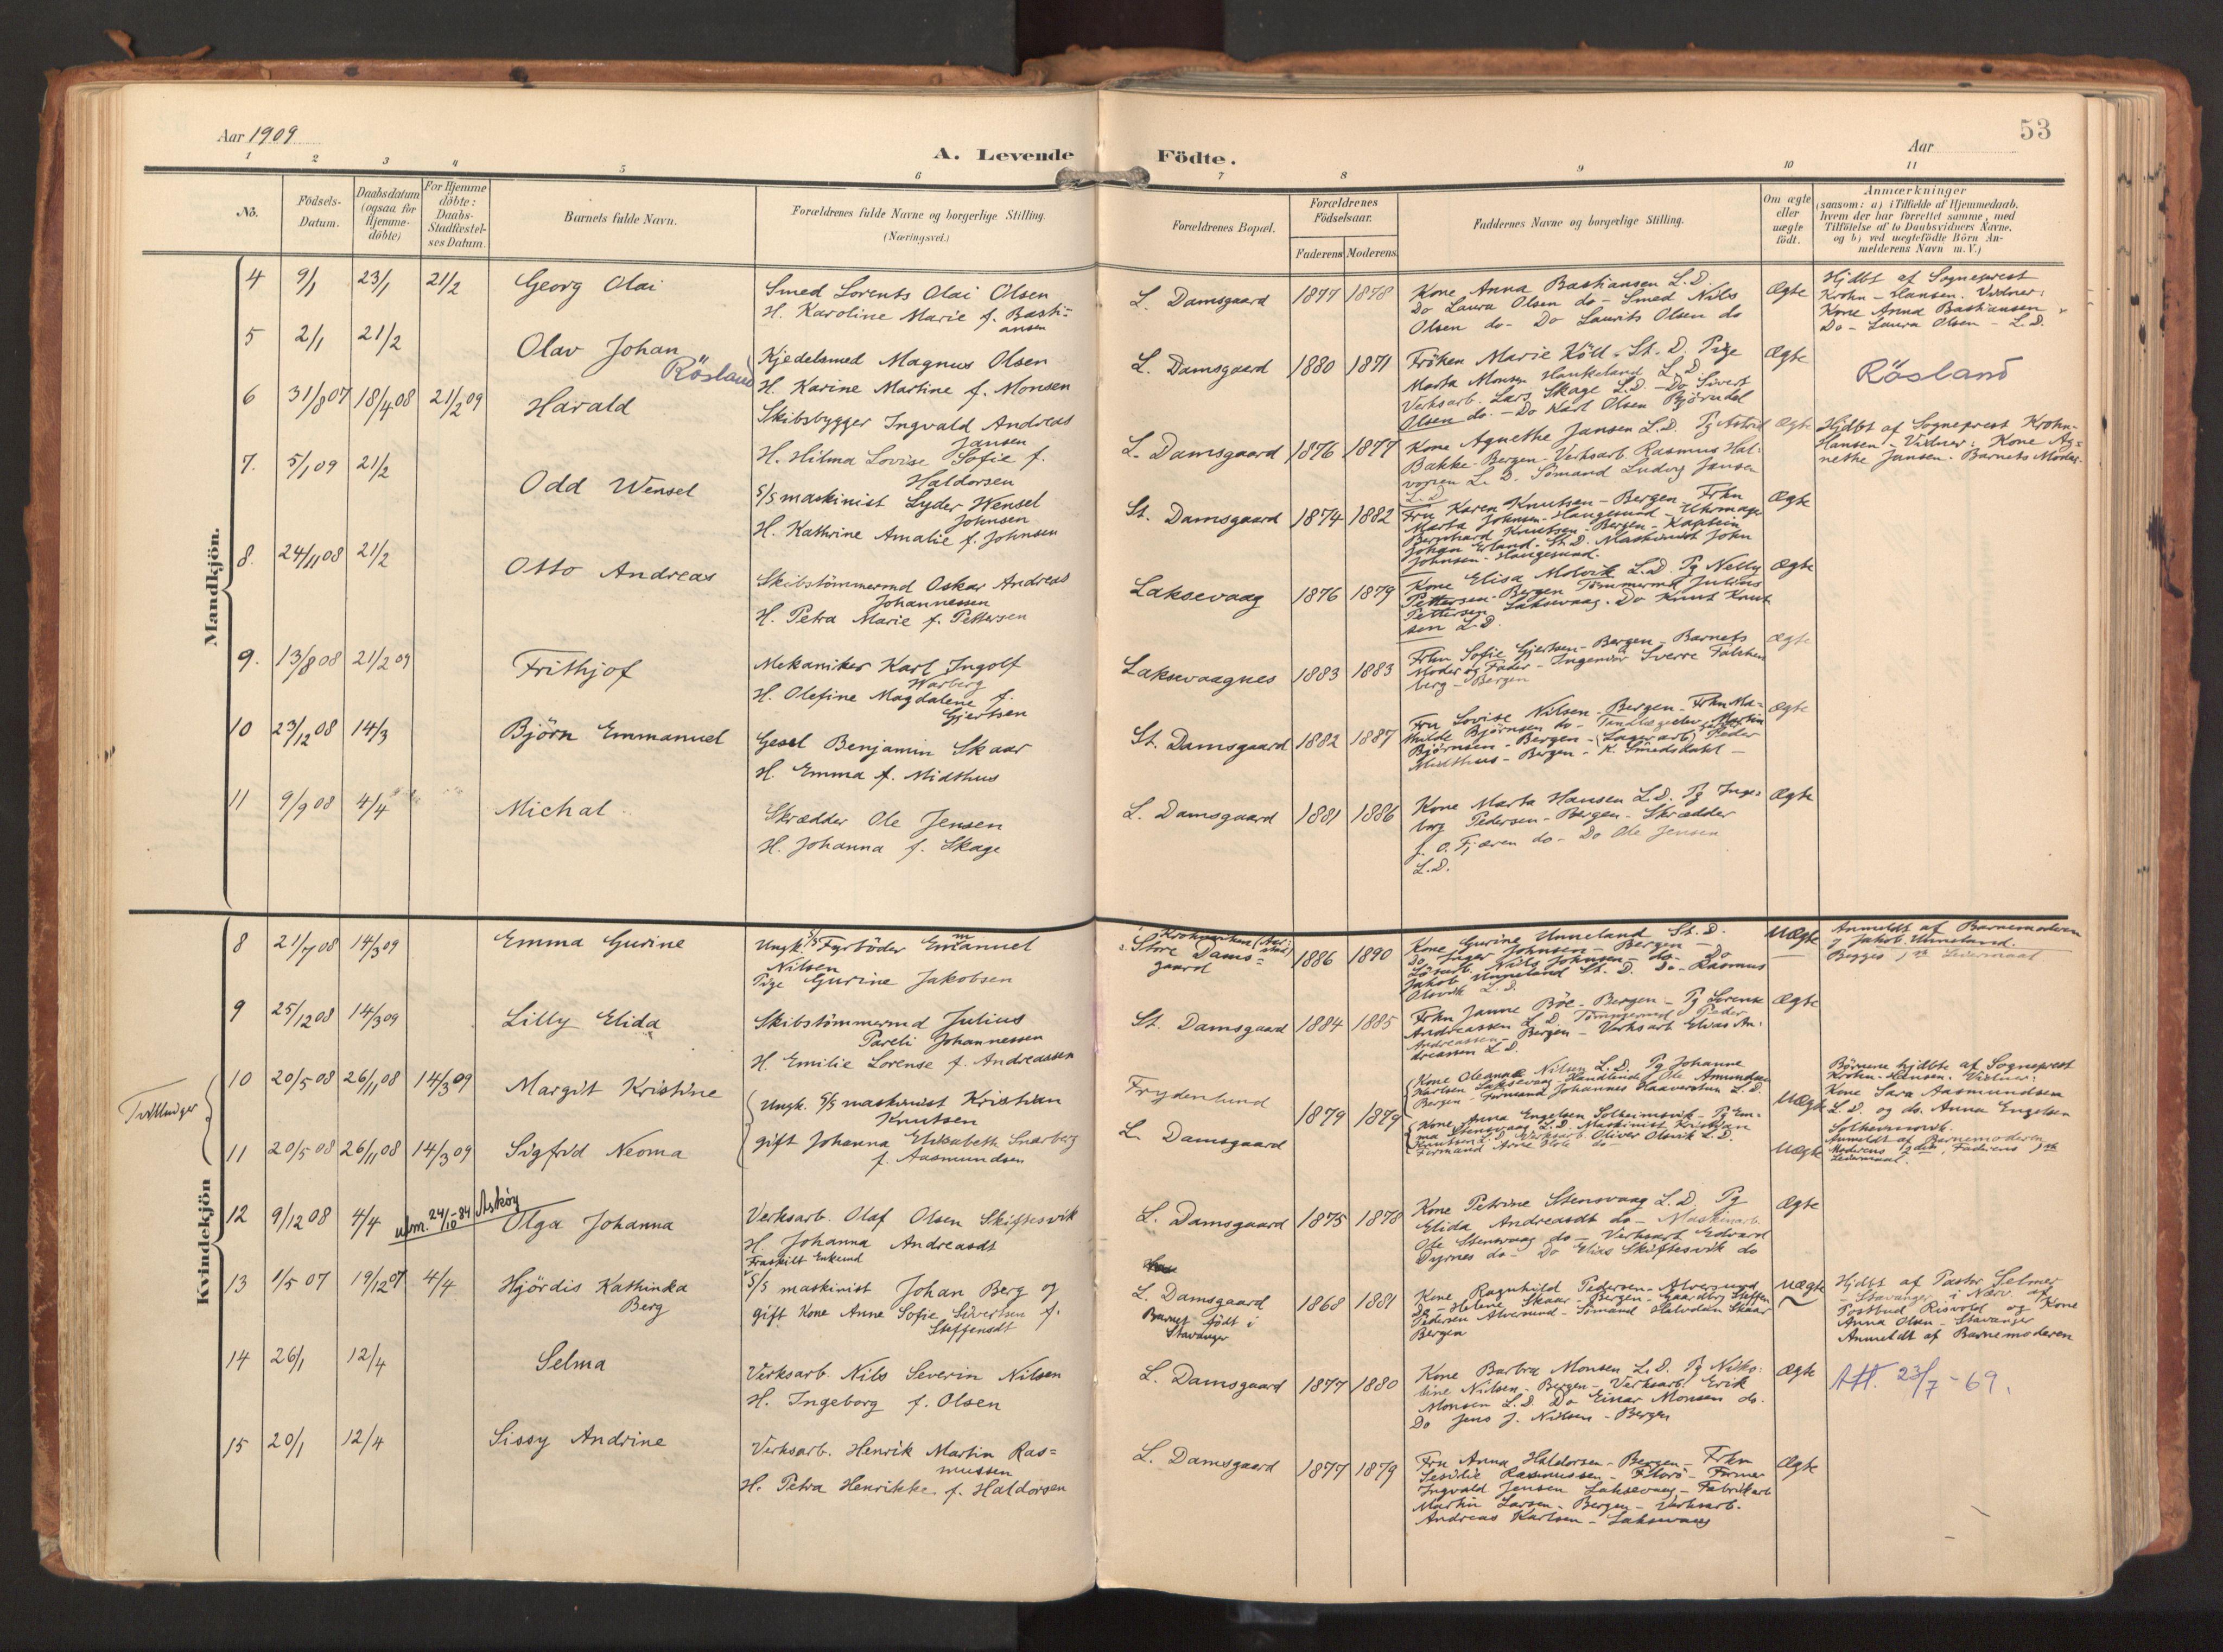 53
Aar 1909
Aar
A. Levende Födte.
1 2 3 4 5 6 7 8 9 10 11
No.
Födsels-Datum.
Daabsdatum (ogsaa for Hjemme-döbte)
For Hjemme döbte: Daabs-Stadfæstel-ses Datum.
Barnets fulde Navn.
Forældrenes fulde Navne og borgerlige Stilling.
(Næringsvei.)
Forældrenes Bopæl.
Forældrenes Födselsaar.
Faderens Moderens
Faddernes Navne og borgerlige Stilling.
Om ægte eller uægte födt.
Anmærkninger
(saasom: a) i Tilfælde af Hjemmedaab,
hvem der har forrettet samme, med
Tilföielse af to Daabsvidners Navne,
og b) ved uægtefödte Börn An-
melderens Navn m. V.)
Mandkjön.
4 9/1 23/1 21/2 Georg Olai
Smed Lorents Olai Olsen
H. Karoline Marie f. Basti-
ansen
L. Damsgaard 1877 1878
Kone Anna Bastiansen L.D.
Do Laura Olsen do - Smed Nils
Olsen do - Do Laurits Olsen do
Ægte
Hjdbt af Sogneprest
Krohn-Hansen. Vidner:
Kone Anna Bastiansen
Do - Laura Olsen - L.D.
5 2/1 21/2 Olav Johan
Rösland
Kjedelsmed Magnus Olsen
H. Karine Martine f. Monsen
L. Damsgaard 1880 1871
Fröken Marie Köll - St. D. Pige
Marta Monsen Haukeland L.D.
Verksarb. Lars Skage L.D - Do Sivert
Olsen do. - Do Karl Olsen Björndal
Ægte
Rösland
6 31/8 07 18/4 08 21/2 09 Harald
Skibsbygger Ingvald Andreas
Jansen
H. Hilma Lovise Sofie f.
Haldorsen
L. Damsgaard 1876 1877
Kone Agnethe Jansen L.D. Pg Astrid
Bakke - Bergen - Verksarb. Rasmus Hal-
vorsen L. D. Sömand Ludvig Jansen
L.D
Ægte
Hjdbt af Sogneprest Krohn-
Hansen - Vidner: Kone Ag-
nethe Jansen. Barnets Moder.
7. 5/1 09 21/2 Odd Wensel
S/S maskinist Lyder Wensel
Johnsen
H. Kathrine Amalie f. Johnsen
St. Damsgaard 1874 1882
Fru Karen Knutsen - Bergen - Frkn
Marta Johnsen - Haugesund - Uhrmager
Bernhard Knutsen - Bergen - Kaptein
Johan Erland - St. D. Maskinist John
Johnsen - Haugesund.
Ægte
8. 24/11 08 21/2 Otto Andreas
Skibstömmermd Oskar Andreas
Johannessen
H. Petra Marie f. Pettersen
Laksevaag 1876 1879
Kone Elisa Molvik L.D. Pg Nelly
Pettersen - Bergen Tömmermd Julius
Pettersen Laksevaag. Do Knut Knut
sen L.D.
Ægte
9. 13/8 08 21/2 09 Frithjof
Mekaniker Karl Ingolf
Warberg
H. Olefine Magdalene f.
Gjertsen
Laksevaagnes 1883 1883
Frkn Sofie Gjertsen - Bergen - Barnets
Moder og Fader - Ingeniör Sverre Falken
berg - Bergen
Ægte
10 23/12 08 14/3 Björn Emmanuel
Gesel Benjamin Skaar
H. Emma f. Midthus
St. Damsgaard 1882 1887
Fru Lovise Nilsen - Bergen - Frkn Ma-
thilde Björnsen do - Tandlægeelev Martin
Björnsen - Bergen - (Lagerarb) Peder
Midthus - Bergen -
Ægte
11 9/9 08 4/4 Michal
Skrædder Ole Jensen
H. Johanna f. Skage
L. Damsgaard 1881 1886
Kone Marta Hansen L.D. Pg Inge-
borg Pedersen - Bergen - Skrædder
J. O. Fjæren do - Do Ole Jensen
L.D.
Ægte
Kvindekjön
8 21/7 08 14/3 09 Emma Gurine
Ungk. S/S Fyrböder Emanuel
Nilsen
Pige Gurine Jakobsen
Store Dams-
gaard
1886 1890
Kone Gurine Unneland St. D.
Do Inger Johnsen - Bergen -
Lösarb. Nils Johnsen - do - Do
Jakob Unneland St. D. Do - Rasmus
Olsvik L.D.
Uægte
Anmeldt af Barnemoderen
og Jakob Unneland.
Begges 1ste Leiermaal
9 25/12 08 14/3 09 Lilly Elida
Skibstömmermd Julius
Pareli Johannessen
H. Emilie Lorense f. Andreassen
St. Damsgaard 1884 1885
Frkn Janne Böe - Bergen - Pg Lorense
Andreassen L.D. Tömmermd Peder
Andreassen - Bergen - Verksarb Elias An-
dreassen L.D.
Ægte
Tvillinger
10 20/5 08 26/11 08 14/3 09 Margit Kristine
Ungk. S/S maskinist Kristian
Knutsen
Frydenlund
1879 1879
Kone Oleanna Nilsen L.D. Pg Johanne
Karlsen Laksevaag Handlende Ole Amundsen
Bergen - Formand Johannes Haaverstun L.D.
Uægte
Börnene hjdbte af Sogneprest
Krohn-Hansen. Vidner:
Kone Sara Aasmundsen
L.D. og do. Anna Engelsen
Solheimsvik.
11 20/5 08 26/11 08 14/3 09 Sigfrid Neoma
gift Johanna Elisabeth Snarberg
f. Aasmundsen
L. Damsgaard
Kone Anna Engelsen Solheimsvik - Pg Em-
ma Stensvaag L.D. Maskinist Kristian
Knutsen L.D. Verksarb. Oliver Olsvik L.D.
Uægte
Anmeldt af Barnemoderen
Leiermaal.
12 9/12 08 4/4 utm. 24/10-84 Askøy
Olga Johanna
Verksarb. Olaf Olsen Skiftesvik
H. Johanna Andreasdt
L. Damsgaard 1875 1878
Kone Petrine Stensvaag L.D. Pg
Elida Andreasdt do - Maskinarb.
Ole Stensvaag do - Verksarb Edvard
Dyrnes do - Do Elias Skiftesvik do
Ægte
13 1/5 07 19/12 07 4/4 Hjördis Kathinka
Berg
Fraskilt Enkemd
S/S maskinist Johan Berg og
gift Kone Anne Sofie Sivertsen f.
Steffensdt
L. Damsgaard
Barnet födt i
Stavanger
1868 1881
Kone Ragnhild Pedersen - Alversund
Do - Helene Skaar - Bergen - Gaardbrg Steffen
Pedersen Alversund - Sömand Halvdan Skaar
Bergen
Uægte
Hjdbt af Pastor Selmer
- Stavanger i Nærv. af
Postbud Risvold og Kone
Anna Olsen - Stavanger
Anmeldt af Barnemoderen
14 26/1 12/4 Selma
Verksarb. Nils Severin Nilsen
H. Ingeborg f. Olsen
L. Damsgaard 1877 1880
Kone Barbra Monsen L.D. Pg Niko-
line Nilsen - Bergen - Verksarb. Erik
Monsen L.D. Do Einar Monsen do.
Do Jens J. Nilsen - Bergen
Ægte
Att. 23/7-69.
15 20/1 12/4 Sissy Andrine
Verksarb. Henrik Martin Ras-
mussen
H. Petra Henrikke f. Haldorsen
L. Damsgaard 1877 1879
Fru Anna Haldorsen - Bergen - Frkn
Rasmussen - Florö - Former
Ingvald Jensen Laksevaag - Fabrikarb
Martin Larsen - Bergen - Verksarb.
Andreas Karlsen - Laksevaag
Ægte